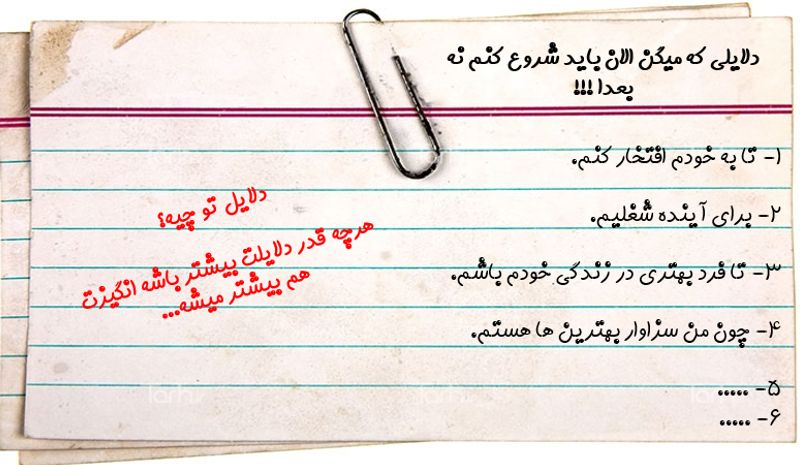 دلایلی که میگن الان باید شروع کنم نه
بعدا !!!
۱- تا به خودم افتخار کنم.
۲- برای آینده شغلیم.
۳- تا فرد بهتری در زندگی خودم باشم.
۴- چون من سزاوار بهترین ها هستم.
۵- .....
۶- .....
دلایل تو چیه؟
هرچه قدر دلایلت بیشتر باشه انگیزت
هم بیشتر میشه...